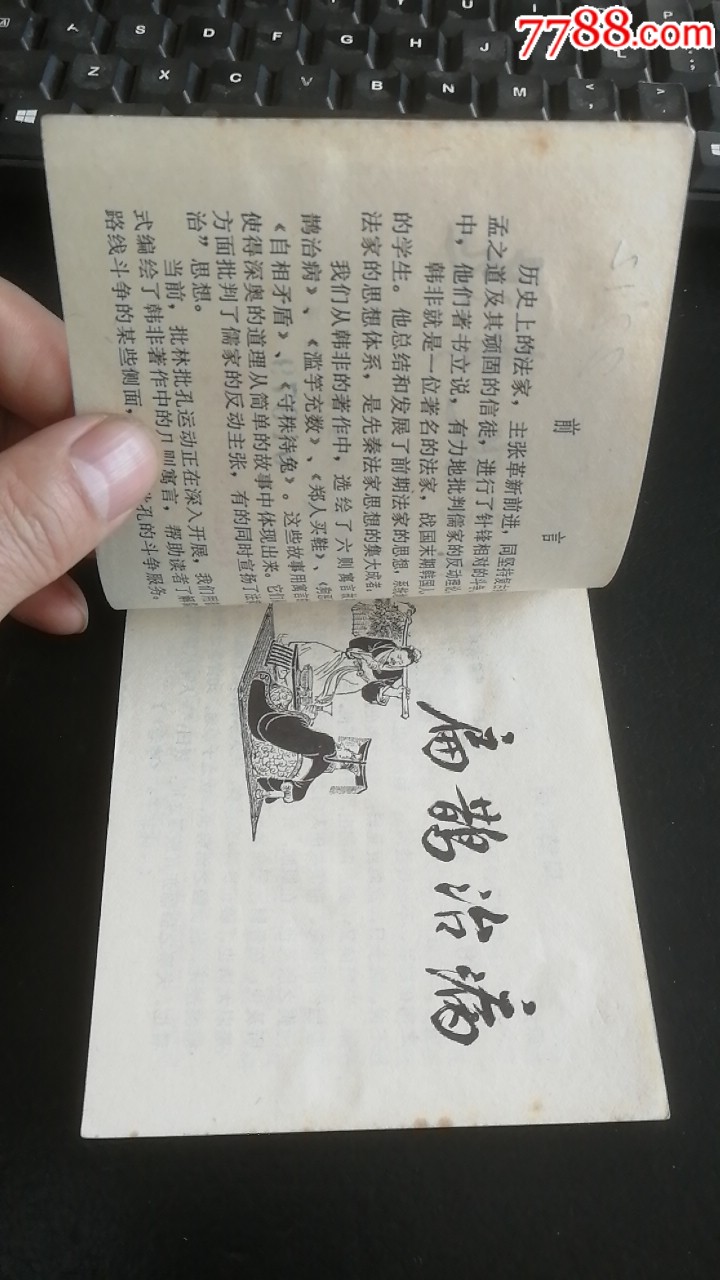 7788.com
前言
历史上的法家，主张革新前进，同坚持复
孟之道及其顽固的信徒，进行了针锋相对的斗
中，他们著书立说，有力地批判儒家的反动理论
韩非就是一位著名的法家，战国末期韩国人
的学生。他总结和发展了前期法家的思想，系统
法家的思想体系，是先秦法家思想的集大成者
我们从韩非的著作中，选绘了六则寓言
鹊治病》、《滥竽充数》、《郑人买鞋》、
《自相矛盾》、《守株待兔》。这些故事用寓言
使得深奥的道理从简单的故事中体现出来。它们
方面批判了儒家的反动主张，有的同时宣扬了法
治”思想。
当前，批林批孔运动正在深入开展，我们用
式编绘了韩非著作中的几则寓言，帮助读者了解
路线斗争的某些侧面，批孔的斗争服务。
扁鹊治病
Z X C V B N M
S D F G H J K L